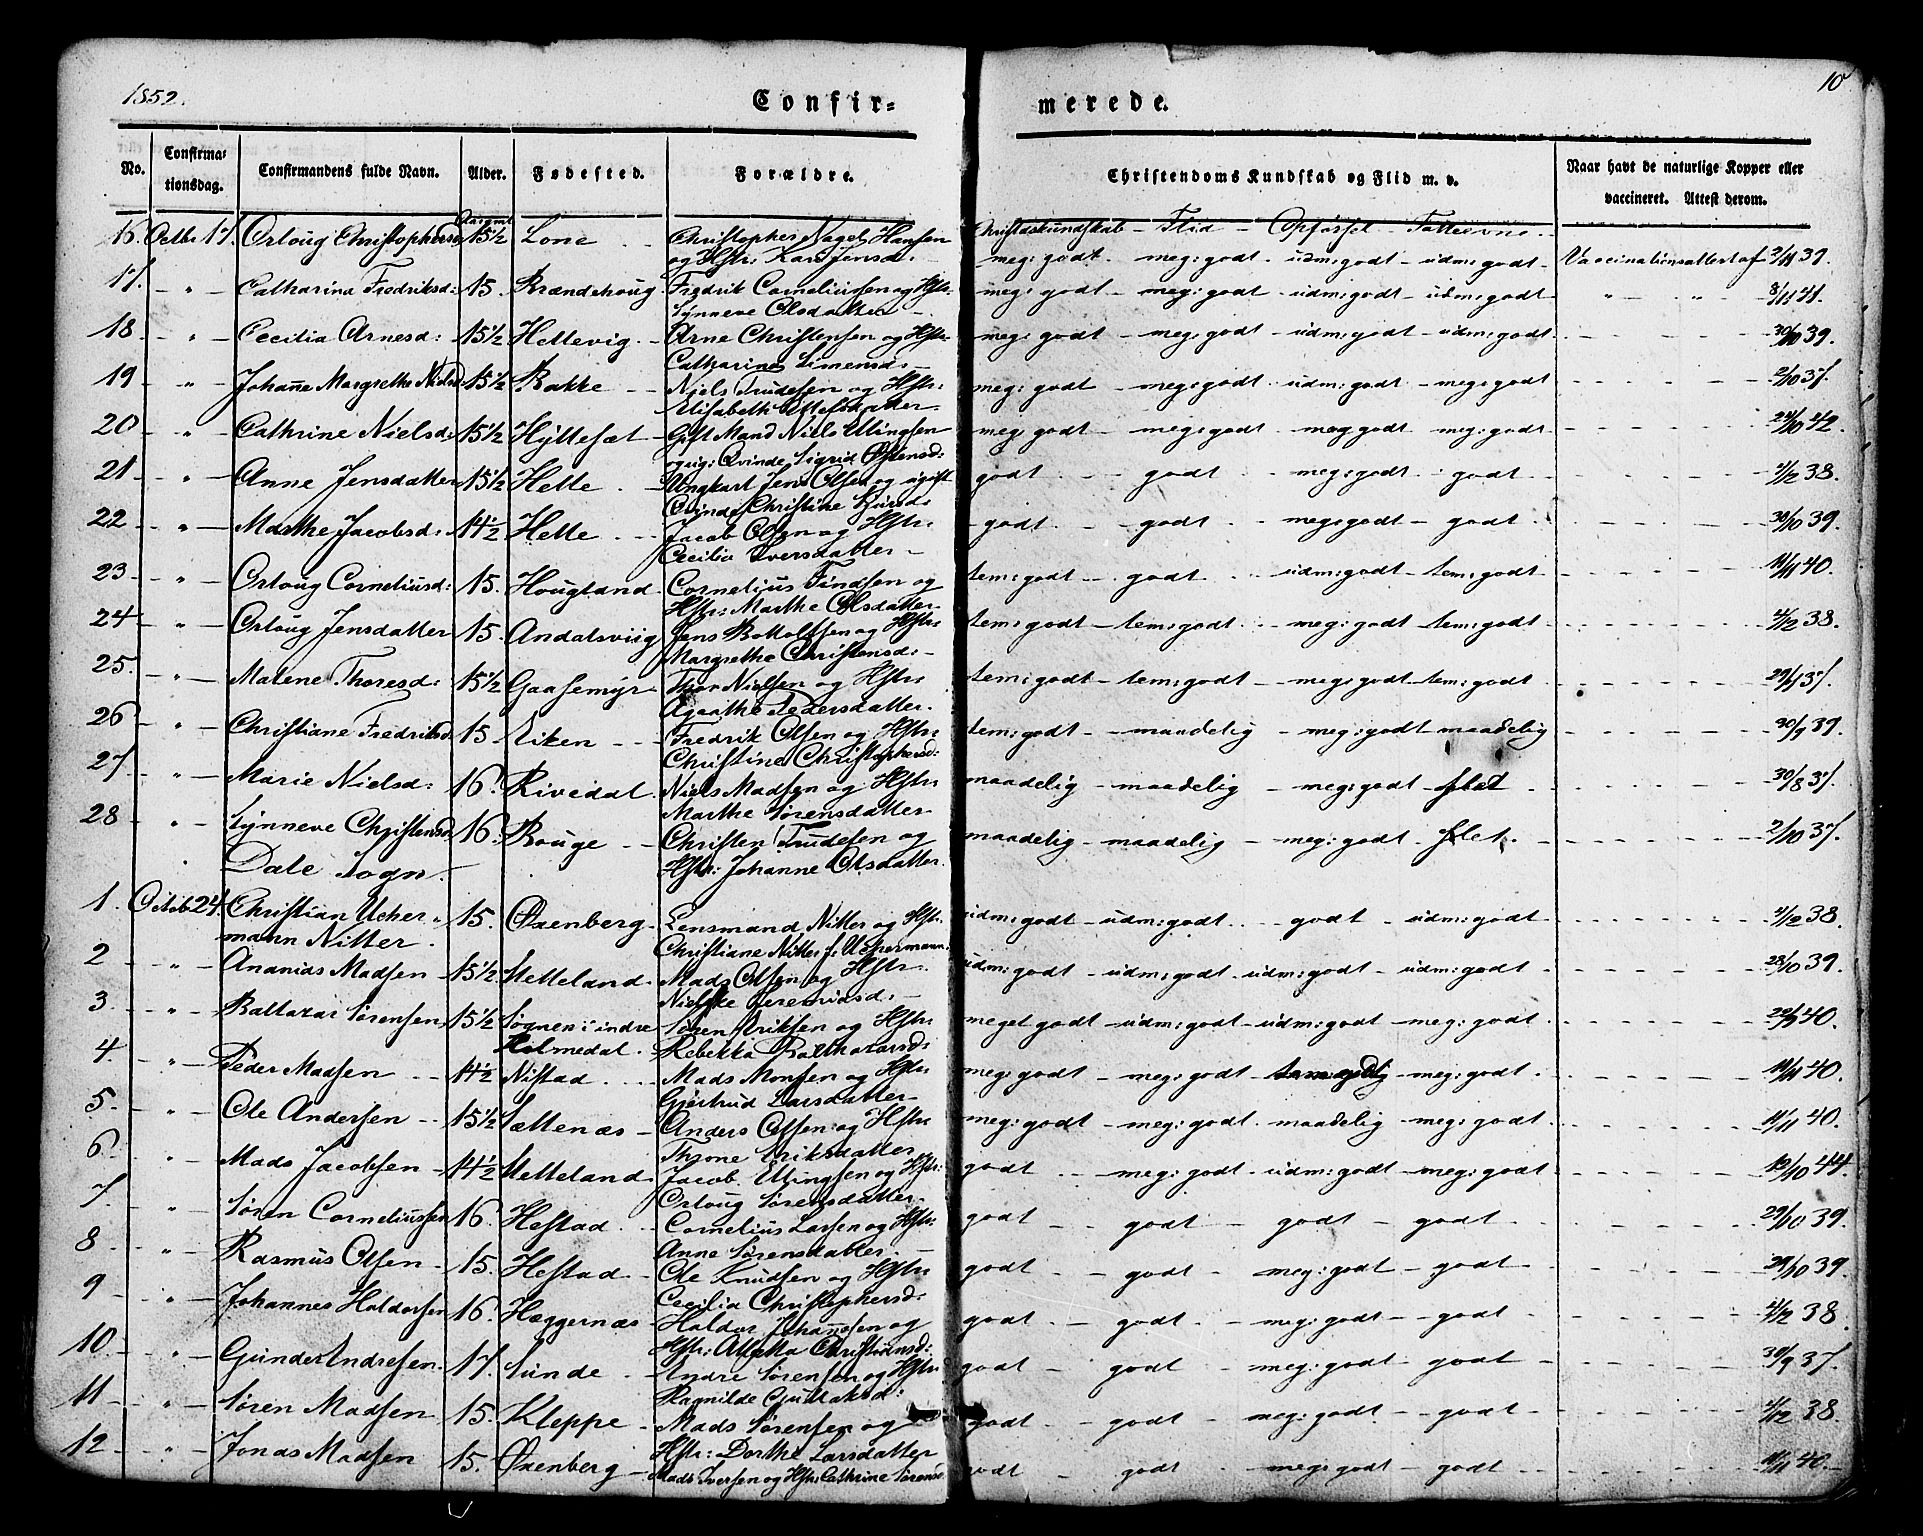 1852.
10
Confirmerede.
No. Confirmationsdag. Confirmandens fulde Navn. Alder. Fødested. Forældre. Christendoms Kundskab og Flid m. v. Naar havt de naturlige Kopper eller vaccineret. Attest derom.
Christdskundskab - Flid - Opførsel - Fatteevne
16. Octbr 17. Orloug Christophersd 15 1/2 Lone Christopher Nagel Hansen meg: godt. meg: godt. udm: godt - udm: godt Vaccinationsattest af 2/11 39.
og Hstr: Kari Jensd:
17. " Catharina Fredriksd: 15. Brændehoug Fredrik Corneliussen og Hstr: meg: godt - meg: godt udm: godt - udm: godt " " 8/11 41.
Synneve Olsdatter
18 " Cecilia Arnesd: 15 1/2 Hellevig Arne Christensen og Hstr: meg: godt - meg: godt - udm: godt - udm: godt 30/10 39.
Catharina Simensd:
19 " Johanne Margrethe Nielsd 15 1/2 Bakke Niels Trudesen og Hstr: meg: godt - meg: godt - udm: godt - meg: godt 2/10 37.
Elisabeth
20 " Cathrine Nielsd: 15 1/2 Hyttesæt Gift Mand Niels Ellingsen meg: godt - meg: godt meg godt meg: godt 24/10 42.
og ug: Qvinde Sigrid Østensd:
21 " Anne Jensdatter 15 1/2 Helle Ungkarl Jens Olsen og ugift godt - godt - meg: godt - godt 2/12 38.
Qvinde Christine
22 " Marthe Jacobsd: 14 1/2 Helle Jacob Olsen og Hstr: godt - godt - meg: godt - godt 30/10 39.
Cecilia Iversdatter
23 " Orloug Corneliusd: 15. Hougland Cornelius Findsen og tem: godt - godt - udm: godt - tem: godt 11/11 40.
Hstr: Marthe Olsdatter
24 " Orloug Jensdatter 15. Andalsviig Jens Bottolfsen og Hstr: tem: godt - tem: godt - meg: godt tem: godt 4/12 38.
Margrethe Christensd:
25. " Malene Thoresd: 15 1/2 Gaasemyr Thor Nielsen og Hstr: tem: godt - tem: godt - meg: godt - tem: godt 29/11 37.
Agathe Pedersdatter.
26 " Christiane Fredriksd. 15 Eiken Fredrik Olsen og Hstr: tem: godt - maadelig - meg: godt maadelig 30/9 39.
Christine Christophersd:
27. " Marie Nielsd: 16. Rivedal. Niels Madsen og Hstr: maadelig - maadelig - meg: godt - slet 30/8 37.
Marthe Sørensdatter
28 " Synneve Christensd. 16. Bouge Christen Trudesen og maadelig - maadelig - meg: godt - slet. 2/10 37.
Hstr: Johanne Olsdatter.
Dale Sogn.
1. Octob 24. Christian Ucher- 15. Øxenberg. Lensmand Nitter og Hstr: udm: godt - udm: godt - godt - udm: godt 4/12 38.
mann Nitter. Christiane Nitter f: Uchermann.
2 " Ananias Madsen 15 1/2 Stetteland. Mads Olsen og Hstr: udm: godt - udm: godt udm: godt - udm: godt 28/10 39.
Jeremiasd:
3. " Baltazar Sørensen 15 1/2 Sognen i indre Søren Eriksen og Hstr: meget godt - udm: godt - udm: godt - meg: godt 40.
Holmedal. Rebekka Balthazarsd:
4 " Peder Madsen 14 1/2 Nistad Mads Monsen og Hstr: meg: godt - meg: godt meg: godt 11/11 40.
Gjertrud Larsdatter
5. " Ole Andersen 15 1/2 Sættenæs Anders Olsen og Hstr: meg: godt - meg: godt. maadelig - meg: godt 11/11 40.
Eriksdatter
6. " Mads Jacobsen 14 1/2 Stetteland. Jacob Ellingsen og Hstr: godt - meg: godt - udm: godt - meg: godt 12/10 44.
Orloug Sørensdatter
7. " Søren Corneliussen 16. Hestad. Cornelius Larsen og Hstr: godt - godt - godt - godt 29/10 39.
Anne Sørensdatter.
8 " Rasmus Olsen 15. Hestad Ole Knudsen og Hstr: godt - godt - meg: godt - godt 29/10 39.
Cecilia Christophersd:
9 " Johannes Haldorsen 16. Hæggernæs Haldor Johannesen og godt - godt - meg: godt - godt 4/12 38.
Hstr: Christiansd:
10. " Gunder Endresen. 17. Sunde Endre Sørensen og Hstr: godt - godt - meg: godt - godt 30/9 37.
Ragnilde
11 " Søren Madsen 15. Kleppe Mads Sørensen og godt - godt - meg: godt - godt 4/12 38.
Hstr: Dorthe Larsdatter
12 " Jonas Madsen 15. Øxenberg Mads Iversen og Hstr: Cathrine Sørensd: godt - godt - meg: godt - godt 11/11 40.